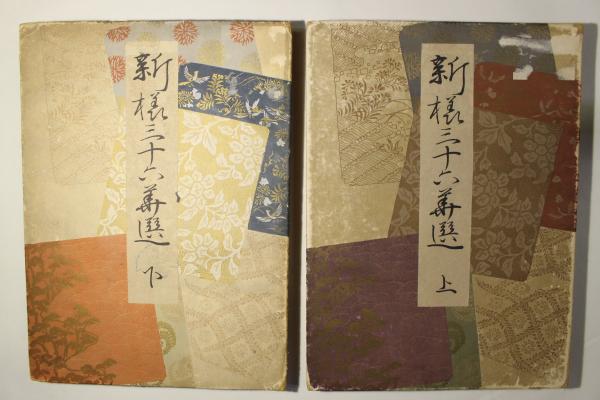 新様三十六華選 下
新様三十六華選 上